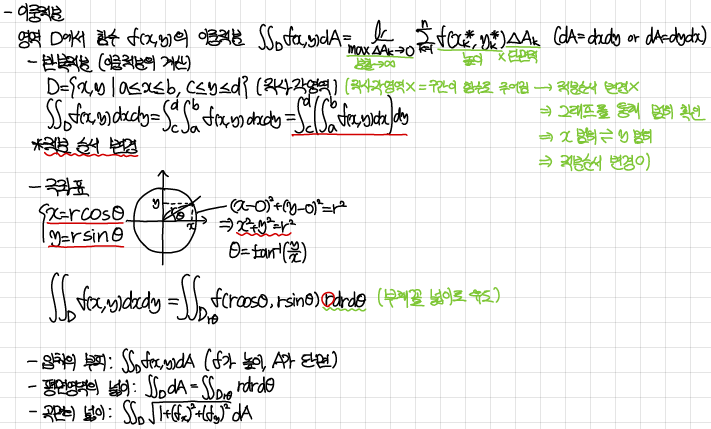 - 이중적분
영역 D에서 함수 f(x,y)의 이중적분 ∬_D f(x,y)dA = lim_{max ΔA_k→0} Σ_{k=1}^{n} f(x_k*, y_k*) ΔA_k (dA=dxdy or dA=dydx)
높이 × 단면적
- 반복적분 (이중적분의 계산)
D={x,y | a≤x≤b, c≤y≤d} (직사각영역) (직사각영역X = 구간이 함수로 주어짐 → 적분순서 변경X
∬_D f(x,y)dxdy = ∫_c^d ∫_a^b f(x,y)dxdy = ∫_c^d (∫_a^b f(x,y)dx) dy ⇒ 그래프를 통해 범위 확인
⇒ x 범위 ⇌ y 범위
*적분 순서 변경 ⇒ 적분순서 변경O)
- 극좌표
{x=rcosθ
y=rsinθ
y
θ
x
(x-0)²+(y-0)²=r²
⇒ x²+y²=r²
θ=tan⁻¹(y/x)
∬_D f(x,y)dxdy = ∬_{D_rθ} f(rcosθ, rsinθ) rdrdθ (부채꼴 넓이로 유도)
- 입체의 부피: ∬_D f(x,y)dA (f가 높이, A가 단면)
- 평면영역의 넓이: ∬_D dA = ∬_{D_rθ} rdrdθ
- 곡면의 넓이: ∬_D √(1+(f_x)²+(f_y)²) dA